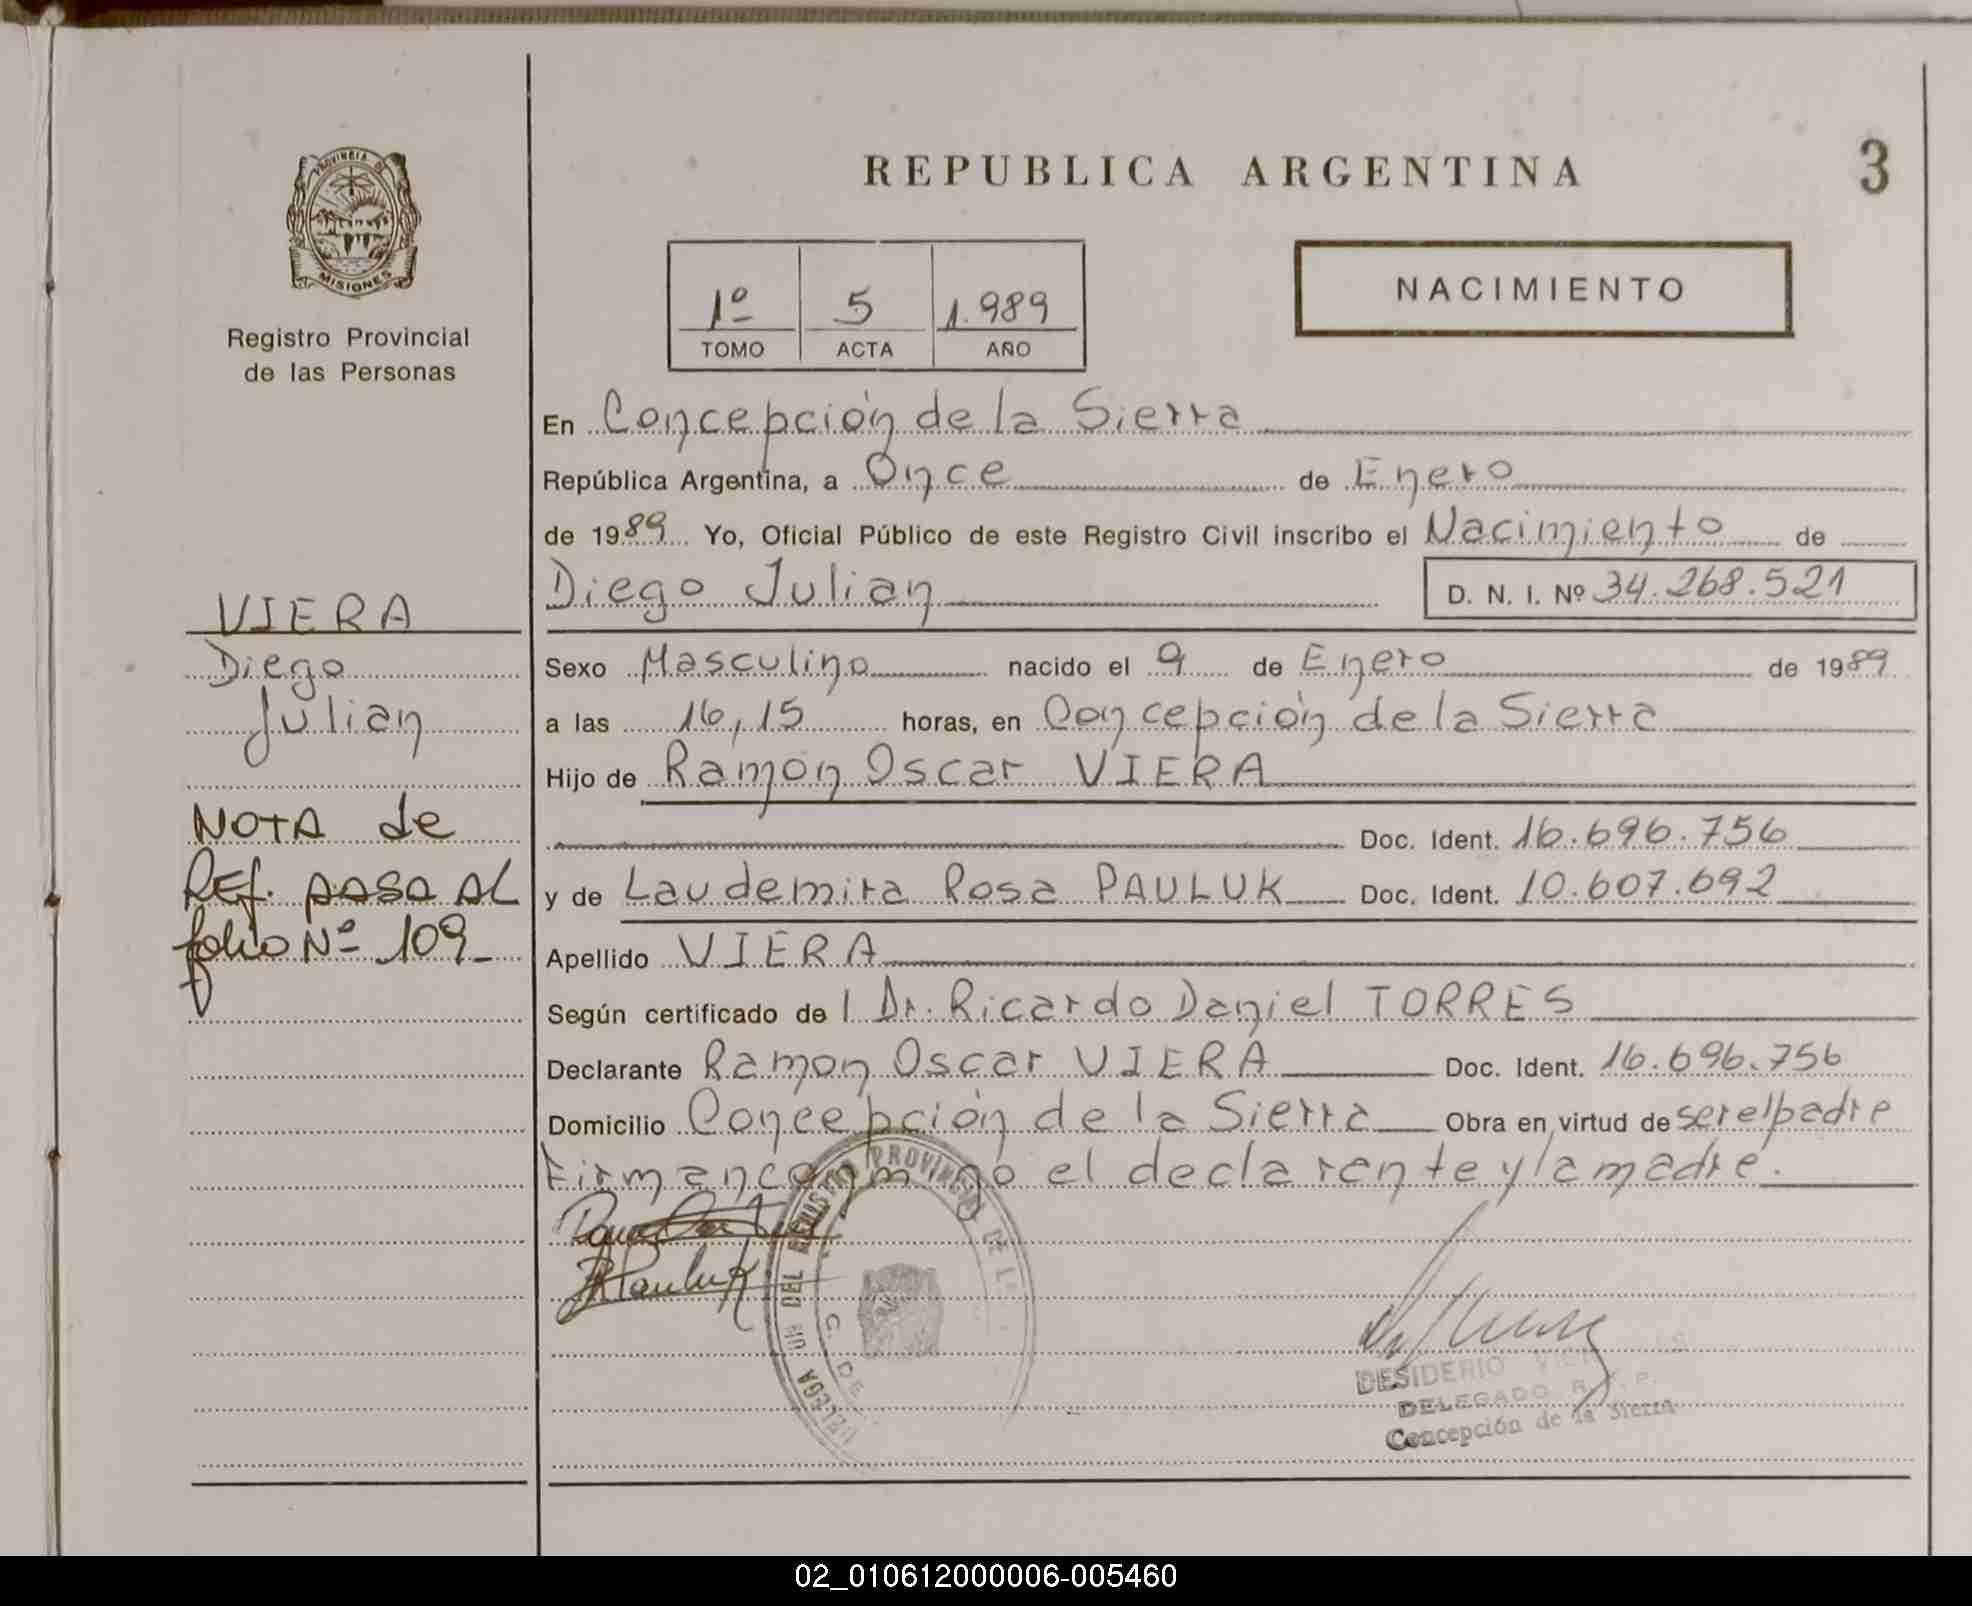 REPUBLICA ARGENTINA
3
PROVINCIA DE
MISIONES
Registro Provincial
de las Personas
1º 5 1.989
TOMO ACTA AÑO
NACIMIENTO
En Concepción de la Sierra
República Argentina, a Once de Enero
de 1989 Yo, Oficial Público de este Registro Civil inscribo el Nacimiento de
Diego Julian D. N. I. Nº 34.268.521
VIERA
Diego
Julian
NOTA de
Ref. pasa al
folio Nº 109
Sexo Masculino nacido el 9 de Enero de 1989
a las 16,15 horas, en Concepción de la Sierra
Hijo de Ramón Oscar VIERA
Doc. Ident. 16.696.756
y de Laudemira Rosa PAULUK Doc. Ident. 10.607.692
Apellido VIERA
Según certificado de l Dr. Ricardo Daniel TORRES
Declarante Ramon Oscar VIERA Doc. Ident. 16.696.756
Domicilio Concepción de la Sierra Obra en virtud de ser el padre
Firman conmigo el declarente y la madre.
Pauluk
DEL REGISTRO PROVINCIAL DE L
C. DE
DESIDERIO
DELEGADO R. P. P.
Concepción de la Sierra
02_010612000006-005460